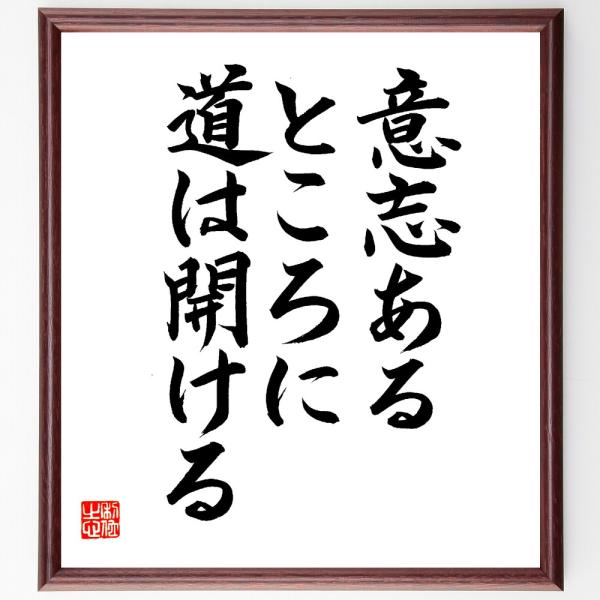 意志ある
ところに
道は開ける